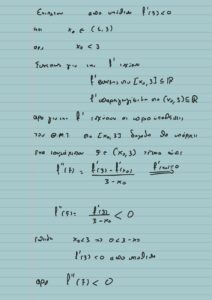 Επιπλεον απο υποθεση f'(3)<0
και x₀ ∈ (1,3)
αρα x₀ < 3
Συνεπως για την f' ισχυει
f' συνεχης στο [x₀,3] ⊆ ℝ
f' παραγωγισιμη στο (x₀,3) ⊆ ℝ
αρα για την f' ισχυουν οι προυποθεσεις
του Θ.Μ.Τ. στο [x₀,3] δηλαδη θα υπαρχει
ενα τουλαχιστον ξ ∈ (x₀,3) τετοιο ωστε
f''(ξ) = f'(3) - f'(x₀) / 3 - x₀ f'(x₀)=0
f''(ξ) = f'(3) / 3 - x₀ < 0
x₀<3 => 0<3-x₀
f'(3)<0 απο υποθεση
αρα f''(ξ) < 0